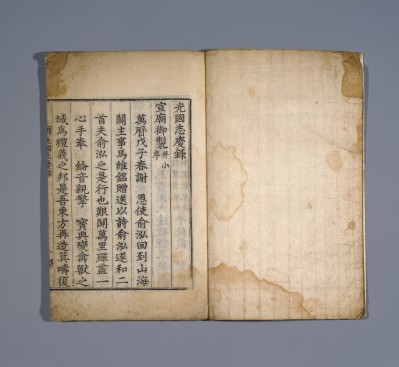 光國志慶錄
宣廟御製 并小序
萬曆戊子春謝 恩使俞泓回到山海
關主事馬維銘贈送以詩俞泓遂和二
首夫俞泓之是行也艱關萬里一
心手奉 綸音親擎 寶典變禽獸之
域爲禮義之邦是吾東方再造箕疇復